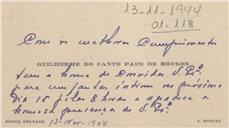 13-11-1944
01.118
Com os melhores Cumprimentos
GUILHERME DO CANTO PAIM DE BRUGES
tem a honra de convidar S. Exª
para um jantar íntimo no próximo
Dia 15 pelas 8 horas e agradece a
honrosa presença de S. Exª
PONTA DELGADA
13-Nov-944
S. MIGUEL